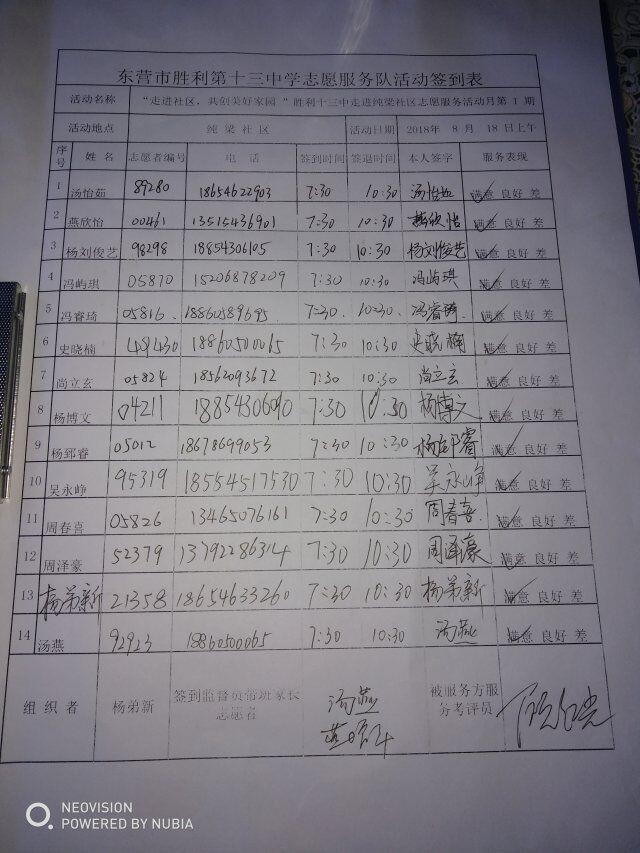 东营市胜利第十三中学志愿服务队活动签到表
活动名称 “走进社区，共创美好家园 ”胜利十三中走进纯梁社区志愿服务活动月第 1 期
活动地点 纯 梁 社 区 活动日期 2018年 8 月 18 日上午
序号 姓 名 志愿者编号 电 话 签到时间 签退时间 本人签字 服务表现
1 汤怡茹 89280 18654622903 7:30 10:30 汤怡茹 满意 良好 差
2 燕欣怡 00461 13515436901 7:30 10:30 燕欣怡 满意 良好 差
3 杨刘俊艺 98298 18854306105 7:30 10:30 杨刘俊艺 满意 良好 差
4 冯屿琪 05870 15206878209 7:30 10:30 冯屿琪 满意 良好 差
5 冯睿琦 05816 18860589695 7:30 10:30 冯睿琦 满意 良好 差
6 史晓楠 48430 18860500065 7:30 10:30 史晓楠 满意 良好 差
7 尚立玄 05824 18562093672 7:30 10:30 尚立玄 满意 良好 差
8 杨博文 04211 18854306090 7:30 10:30 杨博文 满意 良好 差
9 杨郅睿 05012 18678699053 7:30 10:30 杨郅睿 满意 良好 差
10 吴永峥 95319 18554517530 7:30 10:30 吴永峥 满意 良好 差
11 周春喜 05826 13465076161 7:30 10:30 周春喜 满意 良好 差
12 周泽豪 52379 13792286314 7:30 10:30 周泽豪 满意 良好 差
13 杨弟新 21358 18654633260 7:30 10:30 杨弟新 满意 良好 差
14 汤燕 92923 18860500065 7:30 10:30 汤燕 满意 良好 差
组 织 者 杨弟新 签到监督员带班家长志愿者 汤燕 被服务方服务考评员
NEOVISION
POWERED BY NUBIA